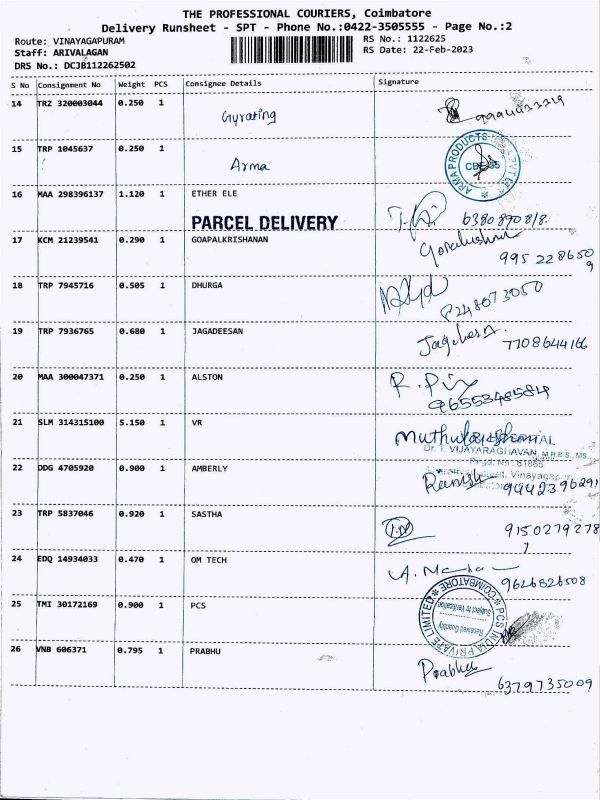 THE PROFESSIONAL COURIERS, Coimbatore
Delivery Runsheet - SPT - Phone No.:0422-3505555 - Page No.:2
Route: VINAYAGAPURAM
RS No.: 1122625
Staff: ARIVALAGAN
RS Date: 22-Feb-2023
DRS No.: DCJB112262502
S No Consignment No Weight PCS Consignee Details Signature
14 TRZ 320003044 0.250 1 Gyrating
15 TRP 1045637 0.250 1 Arma
ARMA PRODUCTS
16 MAA 298396137 1.120 1 ETHER ELE
PARCEL DELIVERY
17 KCM 21239541 0.290 1 GOAPALKRISHANAN
18 TRP 7945716 0.505 1 DHURGA
8248073050
19 TRP 7936765 0.680 1 JAGADEESAN
7708644166
20 MAA 300047371 0.250 1 ALSTON
R.
21 SLM 314315100 5.150 1 VR
Dr. T. VIJAYARAGHAVAN, M.B.B.S., MS.
22 DDG 4705920 0.900 1 AMBERLY
Ramesh 9442396291
23 TRP 5837046 0.920 1 SASTHA
9150279278
24 EDQ 14934033 0.470 1 OM TECH
9626826508
25 TMI 30172169 0.900 1 PCS
PCS INDIA PRIVATE LIMITED * COIMBATORE *
Received Quantity
Subject to Verification
26 VNB 606371 0.795 1 PRABHU Prabhu
6379735009